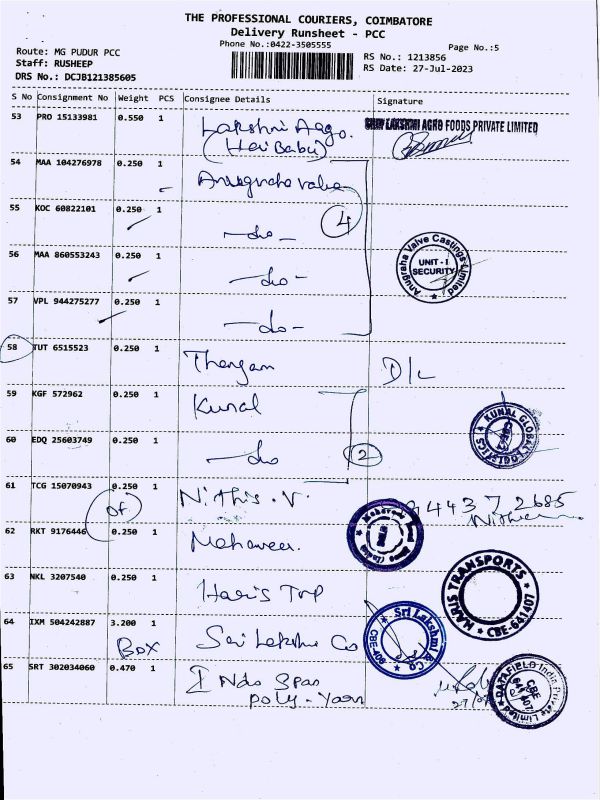 THE PROFESSIONAL COURIERS, COIMBATORE
Delivery Runsheet - PCC
Phone No.:0422-3505555
Page No.:5
Route: MG PUDUR PCC
RS No.: 1213856
Staff: RUSHEEP
RS Date: 27-Jul-2023
DRS No.: DCJB121385605
S No Consignment No Weight PCS Consignee Details Signature
53 PRO 15133981 0.550 1 Lakshmi Agro. LAKSHMI AGRO FOODS PRIVATE LIMITED
(Hari Babu)
54 MAA 104276978 0.250 1 Anugraha valve
4
55 KOC 60822101 0.250 1 -do-
Anugraha Valve Castings Limited
UNIT - I
SECURITY
56 MAA 860553243 0.250 1 -do-
57 VPL 944275277 0.250 1 -do-
58 TUT 6515523 0.250 1 Thangam D/L
59 KGF 572962 0.250 1 Kunal
KUNAL GLOBAL LOGISTICS
60 EDQ 25603749 0.250 1 -do- 2
61 TCG 15070943 0.250 1 Nithis.V. 94437 2685
of
62 RKT 9176446 0.250 1 Mahaveer.
63 NKL 3207540 0.250 1 Haris Trp
HARIS TRANSPORTS
CBE-641407
64 IXM 504242887 3.200 1 Sri Lakshmi Co
BOX
Sri Lakshmi & Co
65 SRT 302034060 0.470 1 Indo Span
Poly-Yarn
DATAFIELD India Private Limited
CBE
641 407